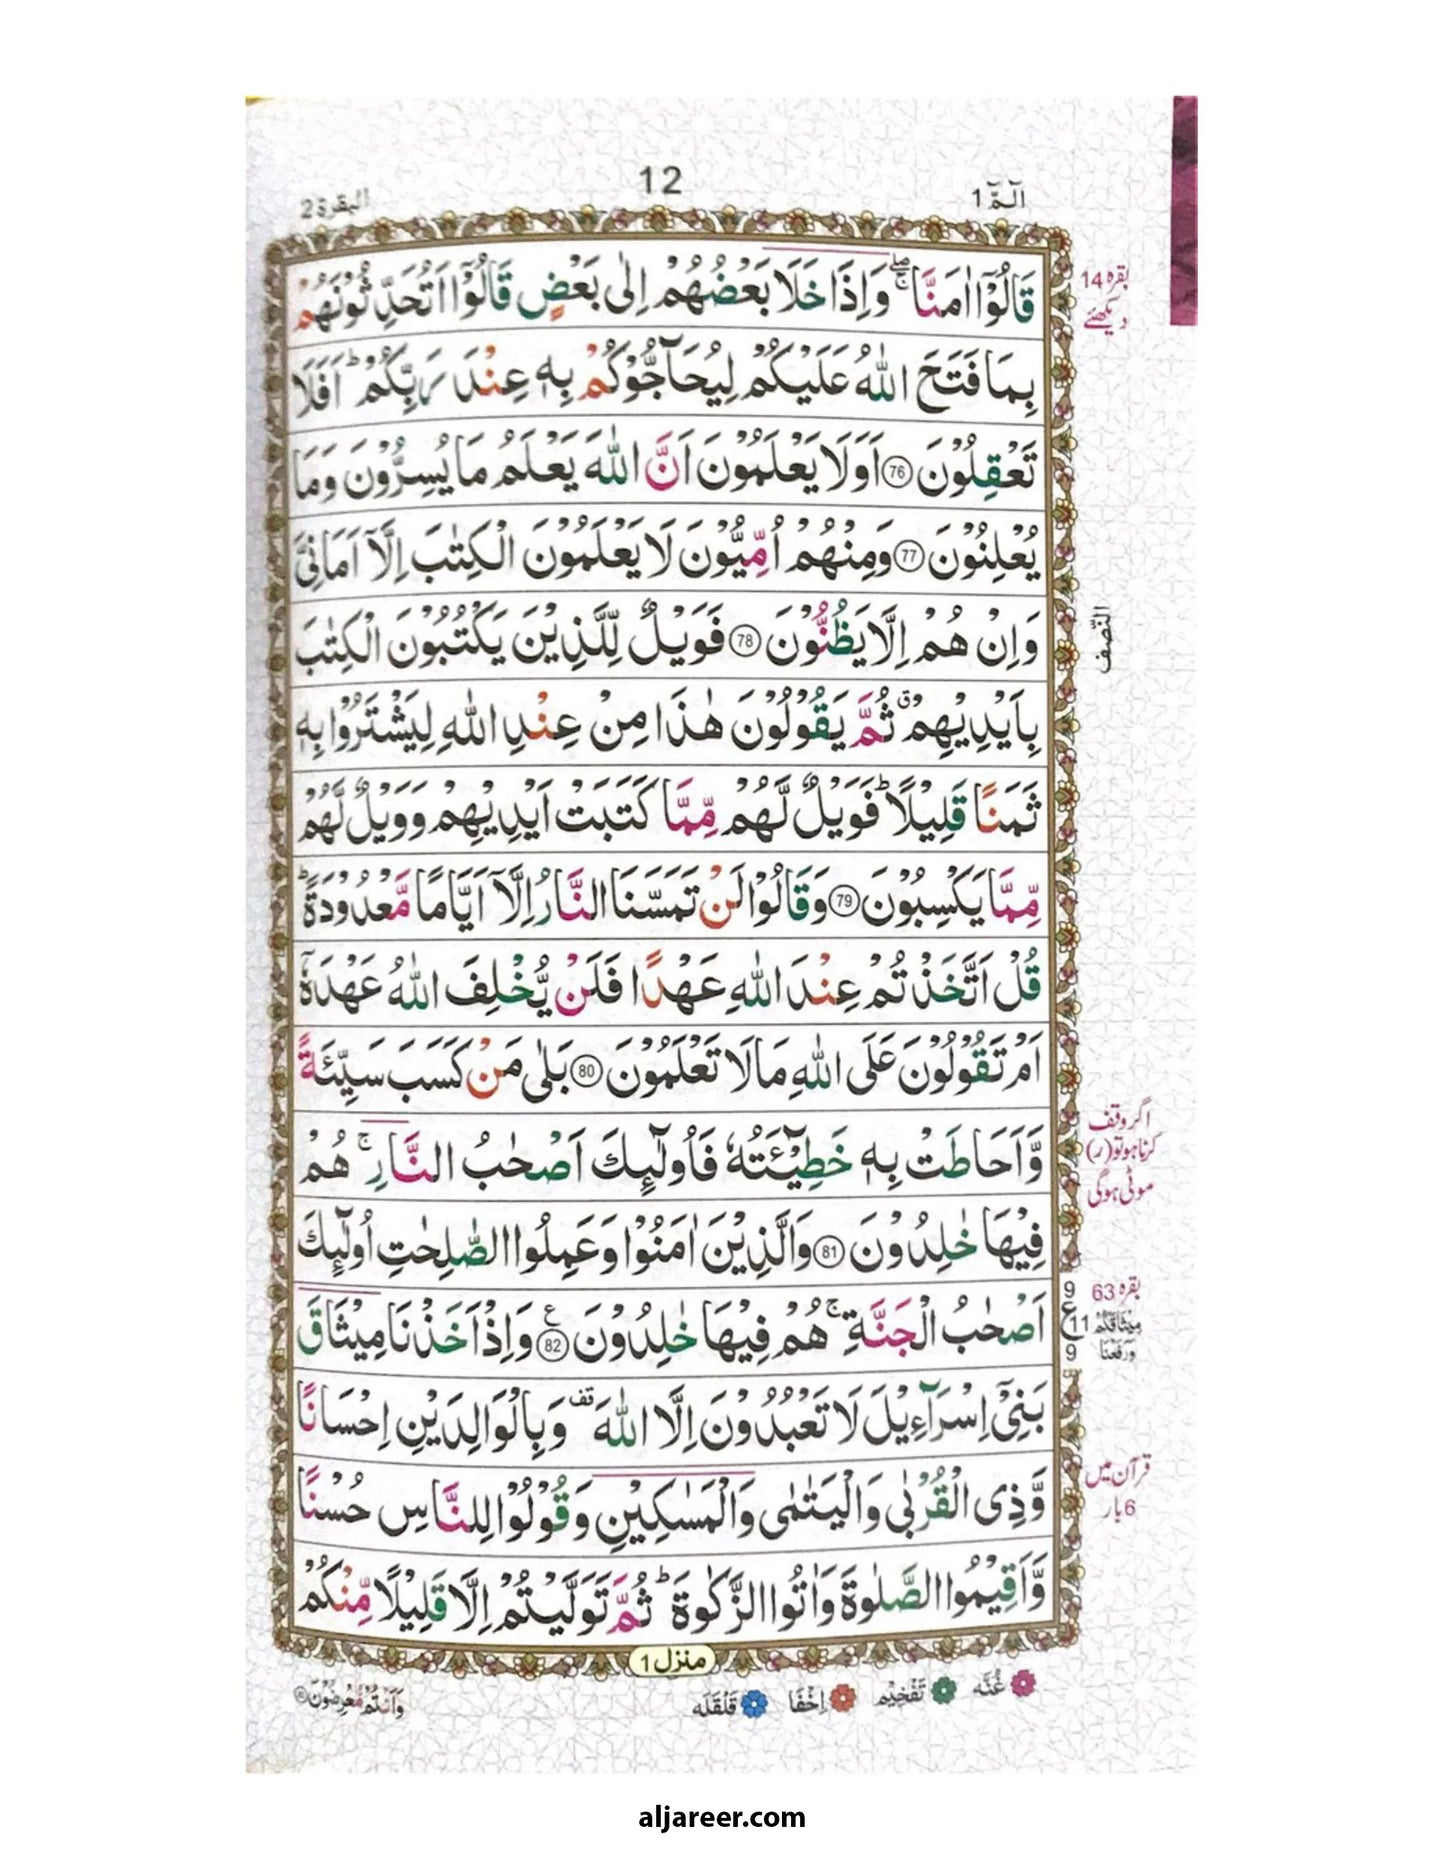 البقرة 2
12
الٓمّٓ 1
قَالُوْۤا اٰمَنَّا ۖۚ وَاِذَا خَلَا بَعْضُهُمْ اِلٰى بَعْضٍ قَالُوْۤا اَتُحَدِّثُوْنَهُمْ
بقرہ 14
دیکھئے
بِمَا فَتَحَ اللّٰهُ عَلَيْكُمْ لِيُحَآجُّوْكُمْ بِهٖ عِنْدَ رَبِّكُمْ ؕ اَفَلَا
تَعْقِلُوْنَ 76 اَوَلَا يَعْلَمُوْنَ اَنَّ اللّٰهَ يَعْلَمُ مَا يُسِرُّوْنَ وَمَا
يُعْلِنُوْنَ 77 وَمِنْهُمْ اُمِّيُّوْنَ لَا يَعْلَمُوْنَ الْكِتٰبَ اِلَّاۤ اَمَانِىَّ
وَاِنْ هُمْ اِلَّا يَظُنُّوْنَ 78 فَوَيْلٌ لِّلَّذِيْنَ يَكْتُبُوْنَ الْكِتٰبَ
النّصف
بِاَيْدِيْهِمْ ۗ ثُمَّ يَقُوْلُوْنَ هٰذَا مِنْ عِنْدِ اللّٰهِ لِيَشْتَرُوْا بِهٖ
ثَمَنًا قَلِيْلًا ؕ فَوَيْلٌ لَّهُمْ مِّمَّا كَتَبَتْ اَيْدِيْهِمْ وَوَيْلٌ لَّهُمْ
مِّمَّا يَكْسِبُوْنَ 79 وَقَالُوْا لَنْ تَمَسَّنَا النَّارُ اِلَّاۤ اَيَّامًا مَّعْدُوْدَةً ؕ
قُلْ اَتَّخَذْتُمْ عِنْدَ اللّٰهِ عَهْدًا فَلَنْ يُّخْلِفَ اللّٰهُ عَهْدَهٗۤ
اَمْ تَقُوْلُوْنَ عَلَى اللّٰهِ مَا لَا تَعْلَمُوْنَ 80 بَلٰى مَنْ كَسَبَ سَيِّئَةً
وَّاَحَاطَتْ بِهٖ خَطِيْٓئَتُهٗ فَاُولٰٓئِكَ اَصْحٰبُ النَّارِ ۚ هُمْ
اگر وقف
کرنا ہو تو (ر)
موٹی ہوگی
فِيْهَا خٰلِدُوْنَ 81 وَالَّذِيْنَ اٰمَنُوْا وَعَمِلُوا الصّٰلِحٰتِ اُولٰٓئِكَ
اَصْحٰبُ الْجَنَّةِ ۚ هُمْ فِيْهَا خٰلِدُوْنَ 82 ع وَاِذْ اَخَذْنَا مِيْثَاقَ
9
ع 11
9
بقرہ 63
مِيْثَاقَكُمْ
وَرَفَعْنَا
بَنِىْۤ اِسْرَآءِيْلَ لَا تَعْبُدُوْنَ اِلَّا اللّٰهَ قف وَبِالْوَالِدَيْنِ اِحْسَانًا
وَّذِى الْقُرْبٰى وَالْيَتٰمٰى وَالْمَسٰكِيْنِ وَقُوْلُوْا لِلنَّاسِ حُسْنًا
قرآن میں
6 بار
وَّاَقِيْمُوا الصَّلٰوةَ وَاٰتُوا الزَّكٰوةَ ؕ ثُمَّ تَوَلَّيْتُمْ اِلَّا قَلِيْلًا مِّنْكُمْ
منزل 1
غُنَّه تَفْخِيْم اِخْفَا قَلْقَلَه
وَاَنْتُمْ مُّعْرِضُوْنَ
aljareer.com